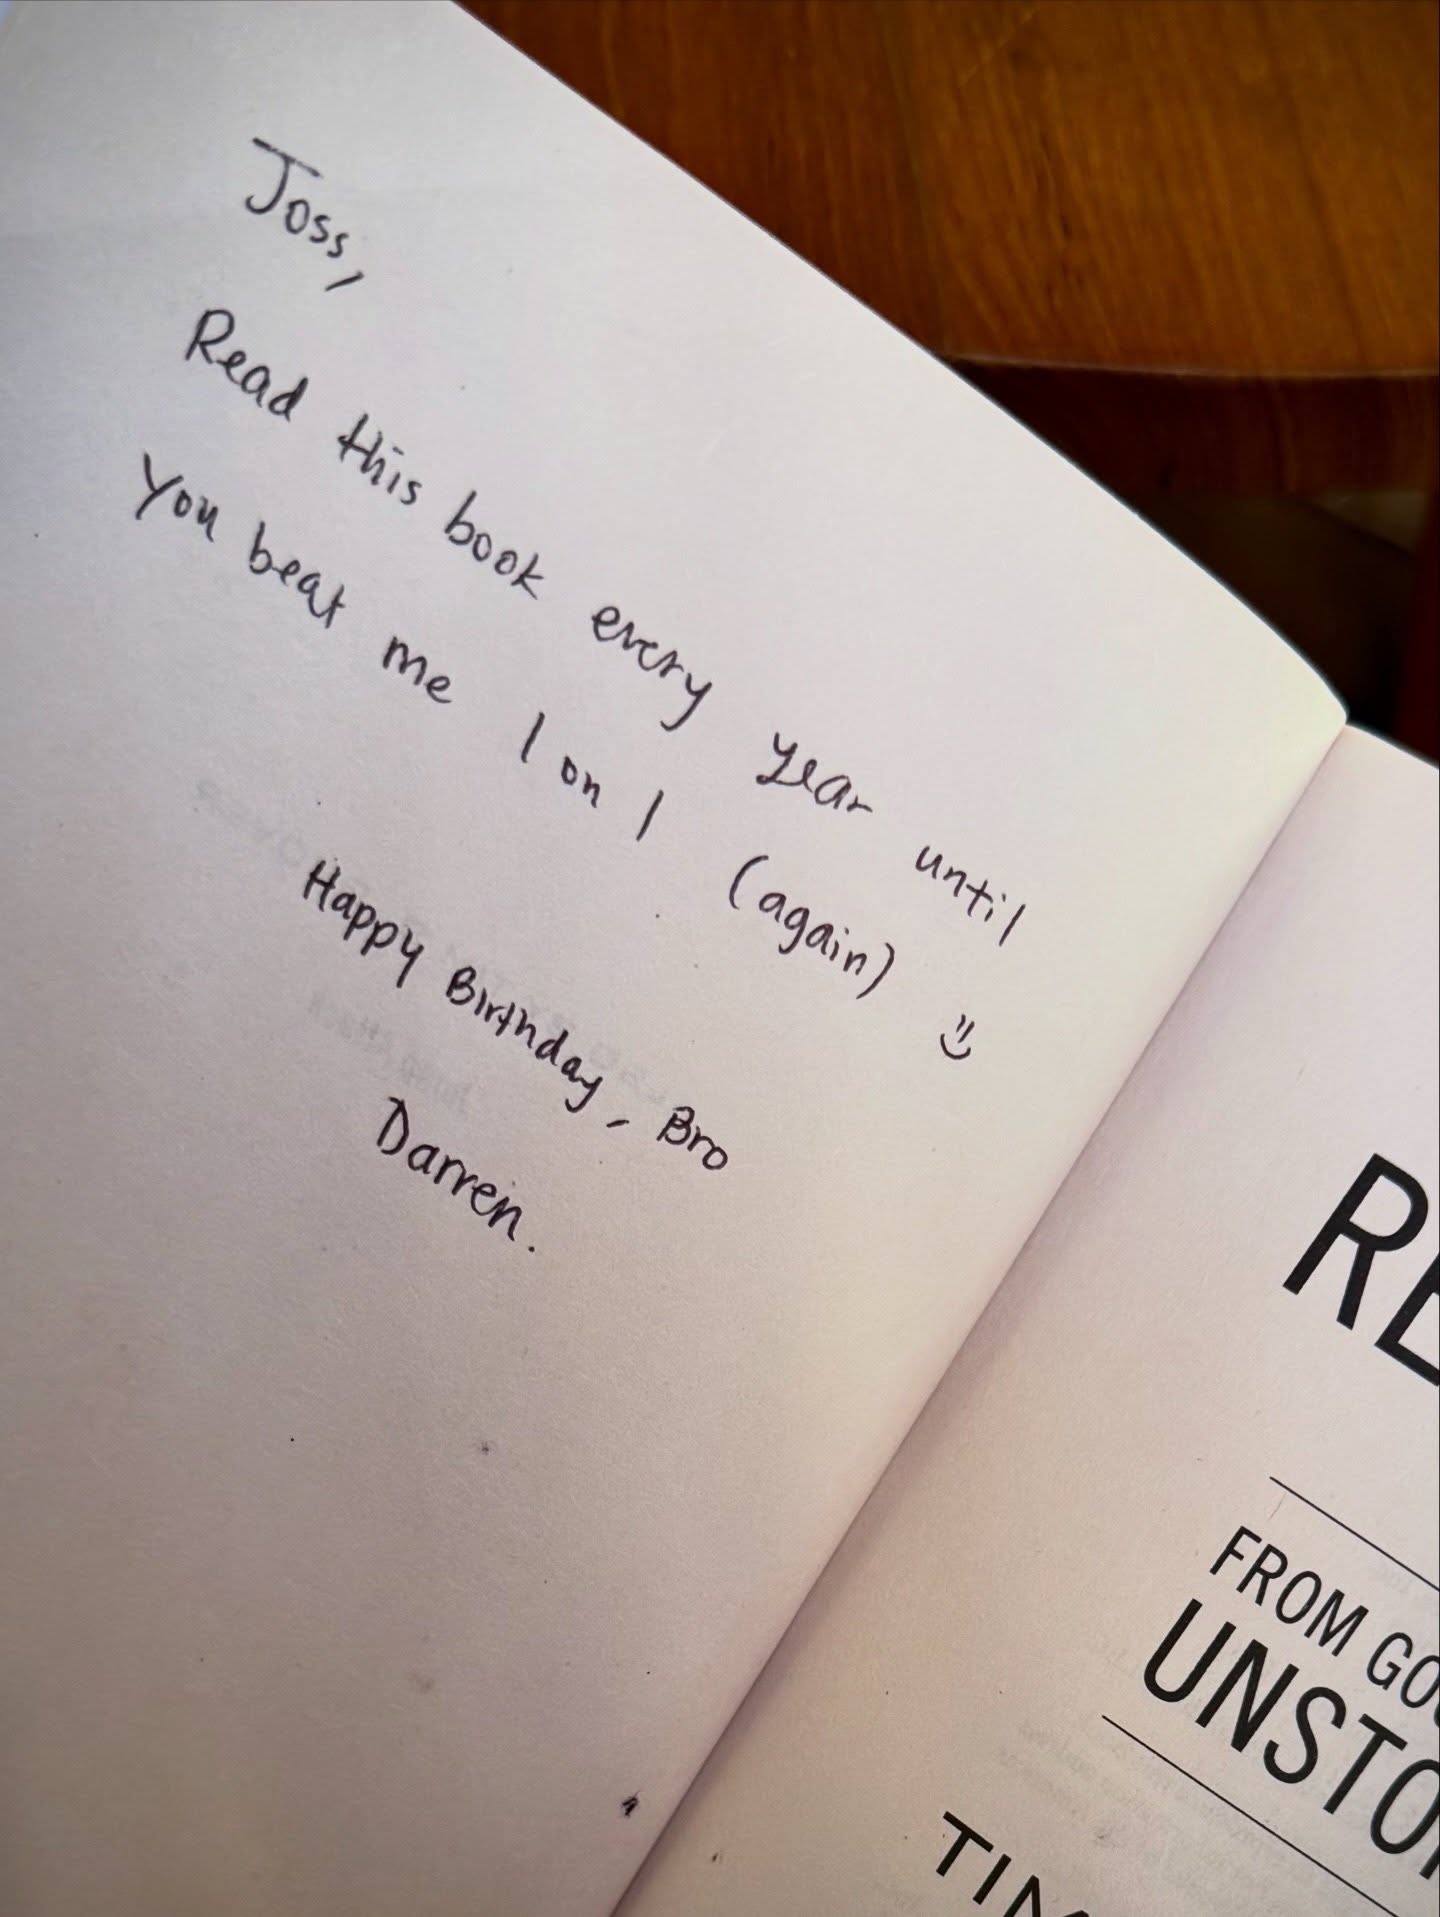 Joss,
Read this book every year until
You beat me 1 on 1 (again)
Happy Birthday, Bro
Darren.
RE
FROM GOO
UNSTO
TIM